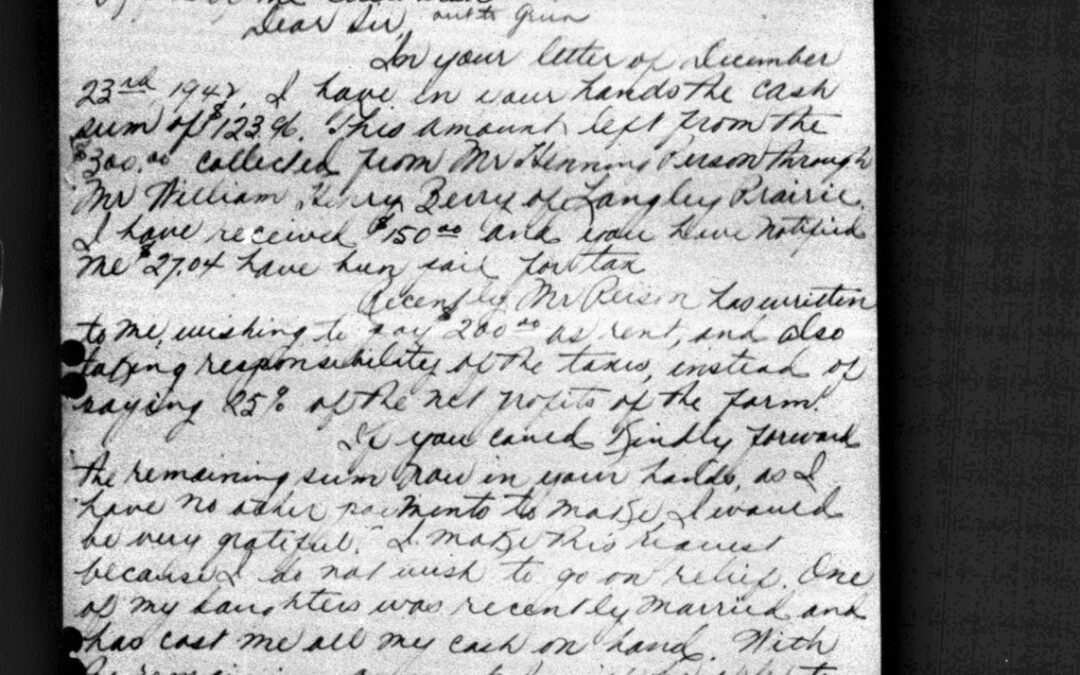 Dear Sir,
In your letter of December
23rd, 1942, I have in your hands the cash
sum of $123.96. This amount left from the
$300.00 collected from Mr Henning Person through
Mr William Henry Berry of Langley Prairie.
I have received $150.00 and you have notified
me $27.04 have been paid for tax
Recently Mr Person has written
to me, wishing to pay $200.00 as rent, and also
taking responsibility of the taxes, instead of
paying 25% of the net profits of the farm.
If you could kindly forward
the remaining sum now in your hands, as I
have no other payments to make, I would
be very grateful. I make this request
because I do not wish to go on relief. One
of my daughters was recently married and
has cost me all my cash on hand. With